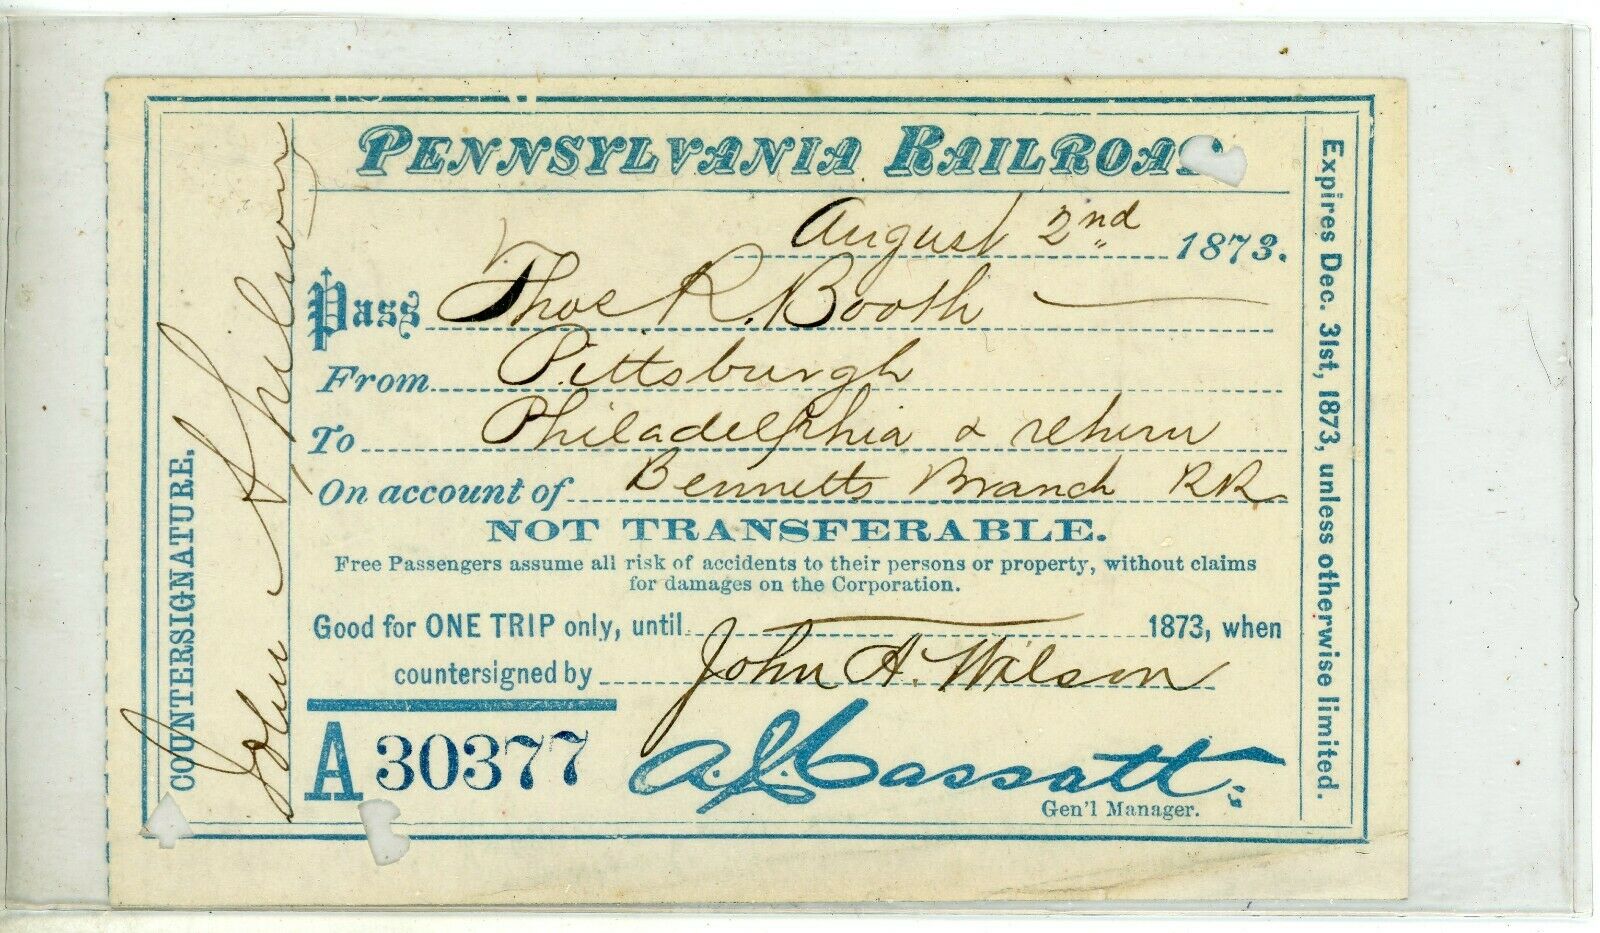 PENNSYLVANIA RAILROAD
August 2nd 1873.
Pass Thos R. Booth
From Pittsburgh
To Philadelphia & return
On account of Bennetts Branch RR
NOT TRANSFERABLE.
Free Passengers assume all risk of accidents to their persons or property, without claims
for damages on the Corporation.
Good for ONE TRIP only, until 1873, when
countersigned by John A. Wilson
A 30377
A. J. Cassatt
Gen'l Manager.
COUNTERSIGNATURE.
John A Wilson
Expires Dec. 31st, 1873, unless otherwise limited.